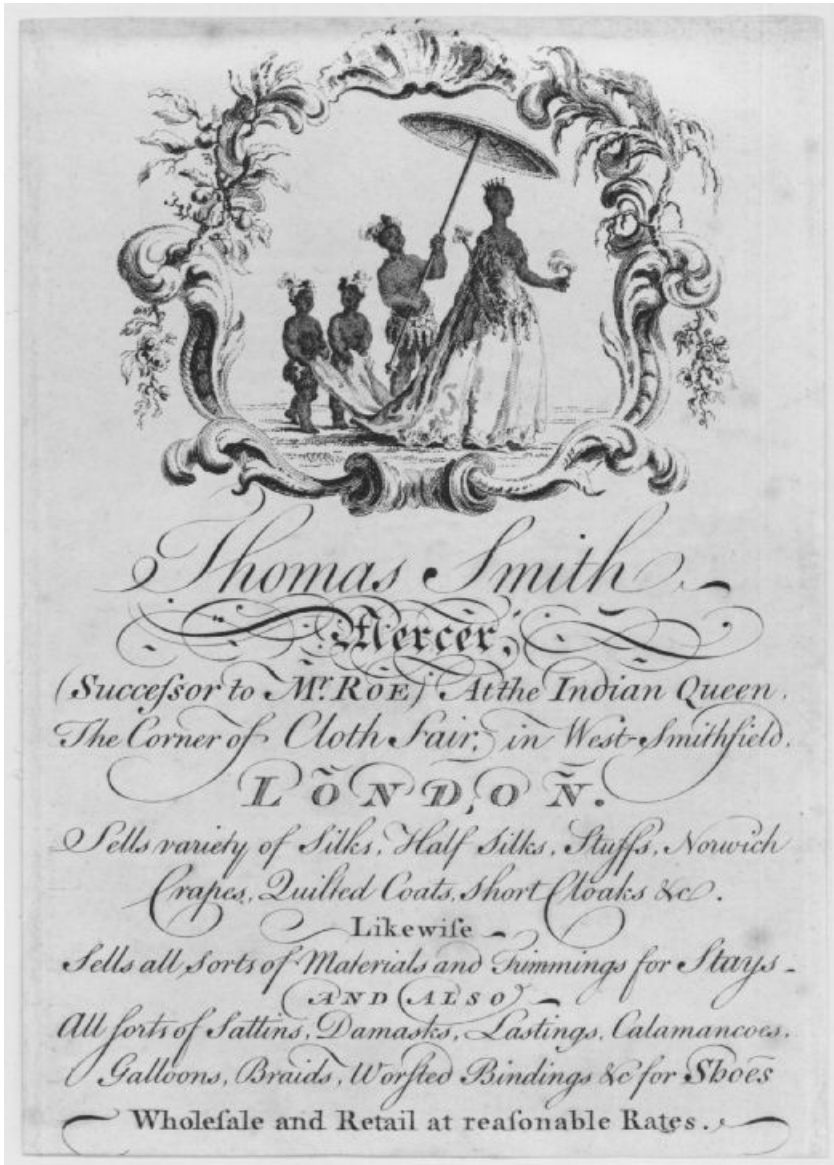 Thomas Smith
Mercer,
(Succeſsor to Mr. ROE) At the Indian Queen,
The Corner of Cloth Fair, in West-Smithfield,
LONDON.
Sells variety of Silks, Half Silks, Stuffs, Norwich
Crapes, Quilted Coats, Short Cloaks &c.
Likewiſe
Sells all Sorts of Materials and Trimmings for Stays
AND ALSO
All ſorts of Sattins, Damasks, Lastings, Calamancoes,
Galloons, Braids, Worſted Bindings &c for Shoes
Wholeſale and Retail at reaſonable Rates.